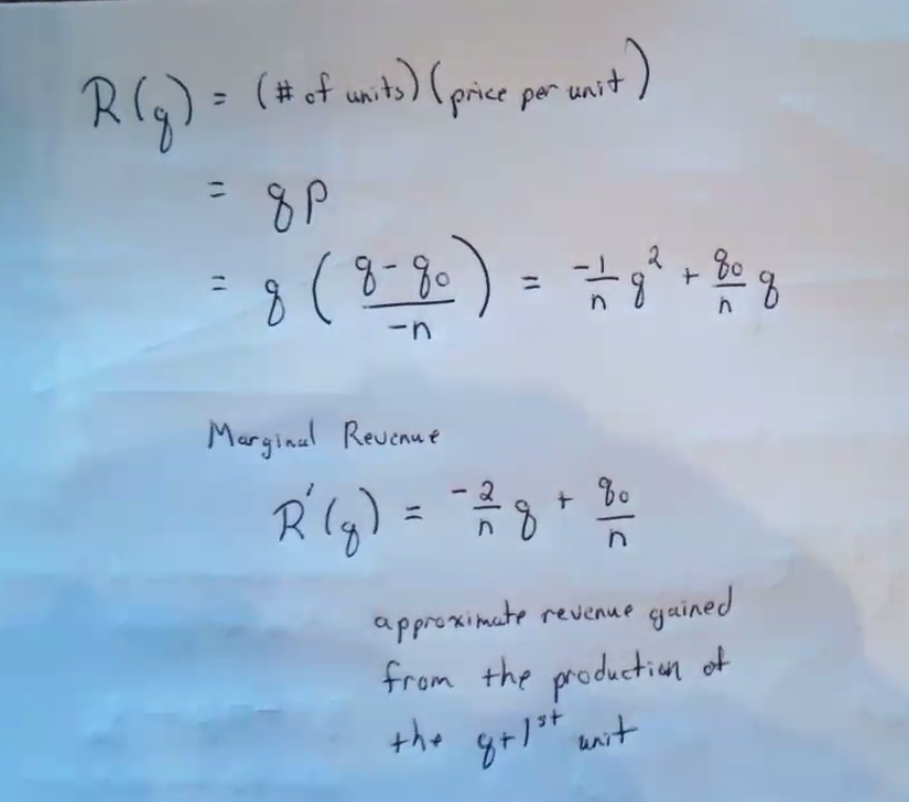 R(q) = (# of units)(price per unit)
= qp
= q ( (q - q₀) / -n ) = -1/n q² + q₀/n q
Marginal Revenue
R'(q) = -2/n q + q₀/n
approximate revenue gained
from the production of
the q+1ˢᵗ unit